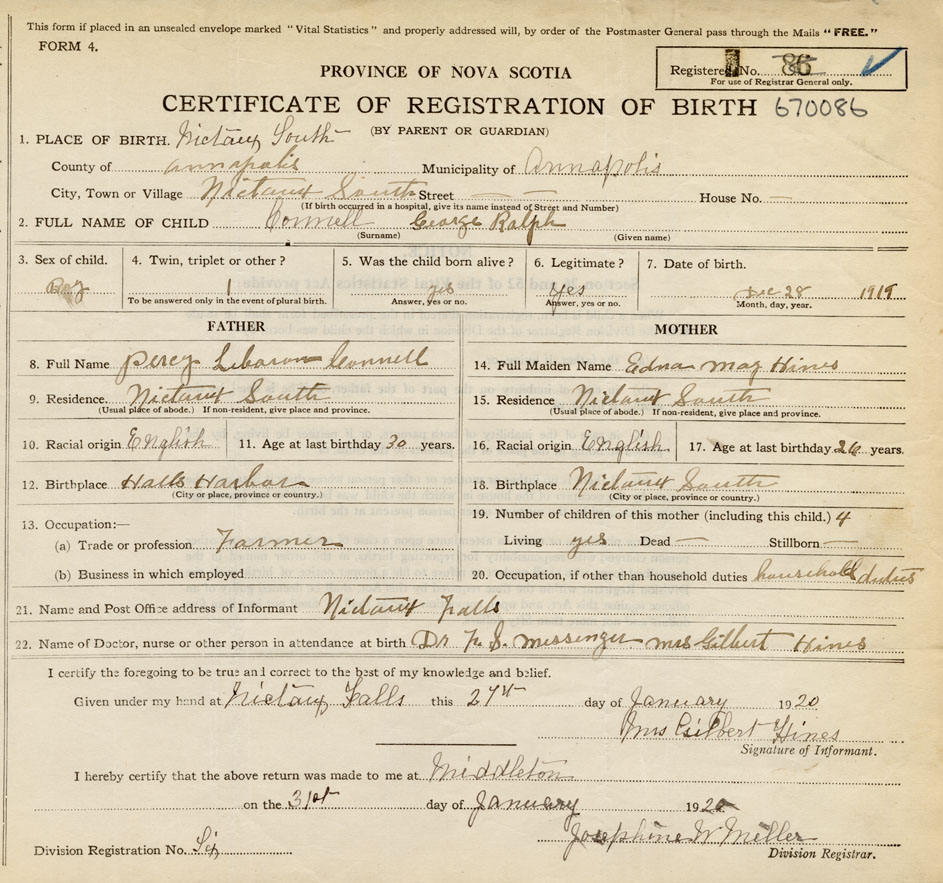 This form if placed in an unsealed envelope marked "Vital Statistics" and properly addressed will, by order of the Postmaster General pass through the Mails "FREE."
FORM 4.
Registered No. 86
For use of Registrar General only.
PROVINCE OF NOVA SCOTIA
CERTIFICATE OF REGISTRATION OF BIRTH 670086
(BY PARENT OR GUARDIAN)
1. PLACE OF BIRTH. Nictaux South
County of Annapolis Municipality of Annapolis
City, Town or Village Nictaux South Street — — House No. —
(If birth occurred in a hospital, give its name instead of Street and Number)
2. FULL NAME OF CHILD Connell George Ralph
(Surname) (Given name)
3. Sex of child. 4. Twin, triplet or other ? 5. Was the child born alive ? 6. Legitimate ? 7. Date of birth.
Boy 1 yes yes Dec 28 1919
To be answered only in the event of plural birth. Answer, yes or no. Answer, yes or no. Month, day, year.
FATHER MOTHER
8. Full Name Percy Lebaron Connell 14. Full Maiden Name Edna May Hines
9. Residence. Nictaux South 15. Residence Nictaux South
(Usual place of abode.) If non-resident, give place and province. (Usual place of abode.) If non-resident, give place and province.
10. Racial origin English 11. Age at last birthday 30 years. 16. Racial origin English 17. Age at last birthday 26 years.
12. Birthplace Halls Harbor 18. Birthplace Nictaux South
(City or place, province or country.) (City or place, province or country.)
13. Occupation:— 19. Number of children of this mother (including this child.) 4
(a) Trade or profession. Farmer Living yes Dead — Stillborn —
(b) Business in which employed 20. Occupation, if other than household duties household duties
21. Name and Post Office address of Informant Nictaux Falls
22. Name of Doctor, nurse or other person in attendance at birth Dr F. S. Messenger Mrs Gilbert Hines
I certify the foregoing to be true and correct to the best of my knowledge and belief.
Given under my hand at Nictaux Falls this 27st day of January 1920
Mrs Gilbert Hines
Signature of Informant.
I hereby certify that the above return was made to me at Middleton
on the 31st day of January 1920
Josephine W Miller
Division Registration No. Six
Division Registrar.